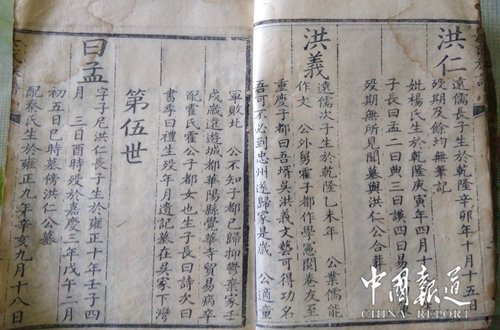 洪仁
遠儒長子生於乾隆辛卯年十月十五日
歿期及餘均無筆記
妣楊氏生於乾隆庚寅年四月十
子長曰孟二曰典三曰謨四曰易
歿期無所見聞墓與洪仁公合葬
洪義
遠儒次子生於乾隆乙未年 公業儒能
作文 公外舅霍子都作學憲閱卷友至
重慶子都曰吾壻吴洪義文藝可得功名
吾可不必到忠州遂歸家是歲 公適重
軍敗北 公不知子都已歸抑鬱棄家壬
戌歲遊城都華陽縣覺華寺貿易病卒
配霍氏霍公子都女也生子長曰詩次曰
書季曰禮生歿年月遺記墓在吴家下灣
第伍世
曰孟
字子尼洪仁長子生於雍正十年壬子四
月 三日酉時歿於嘉慶三年戊午二月
初五日巳時墓傍洪仁公墓
配秦氏生於雍正九年辛亥九月十八日
中國報道
CHINA REPORT